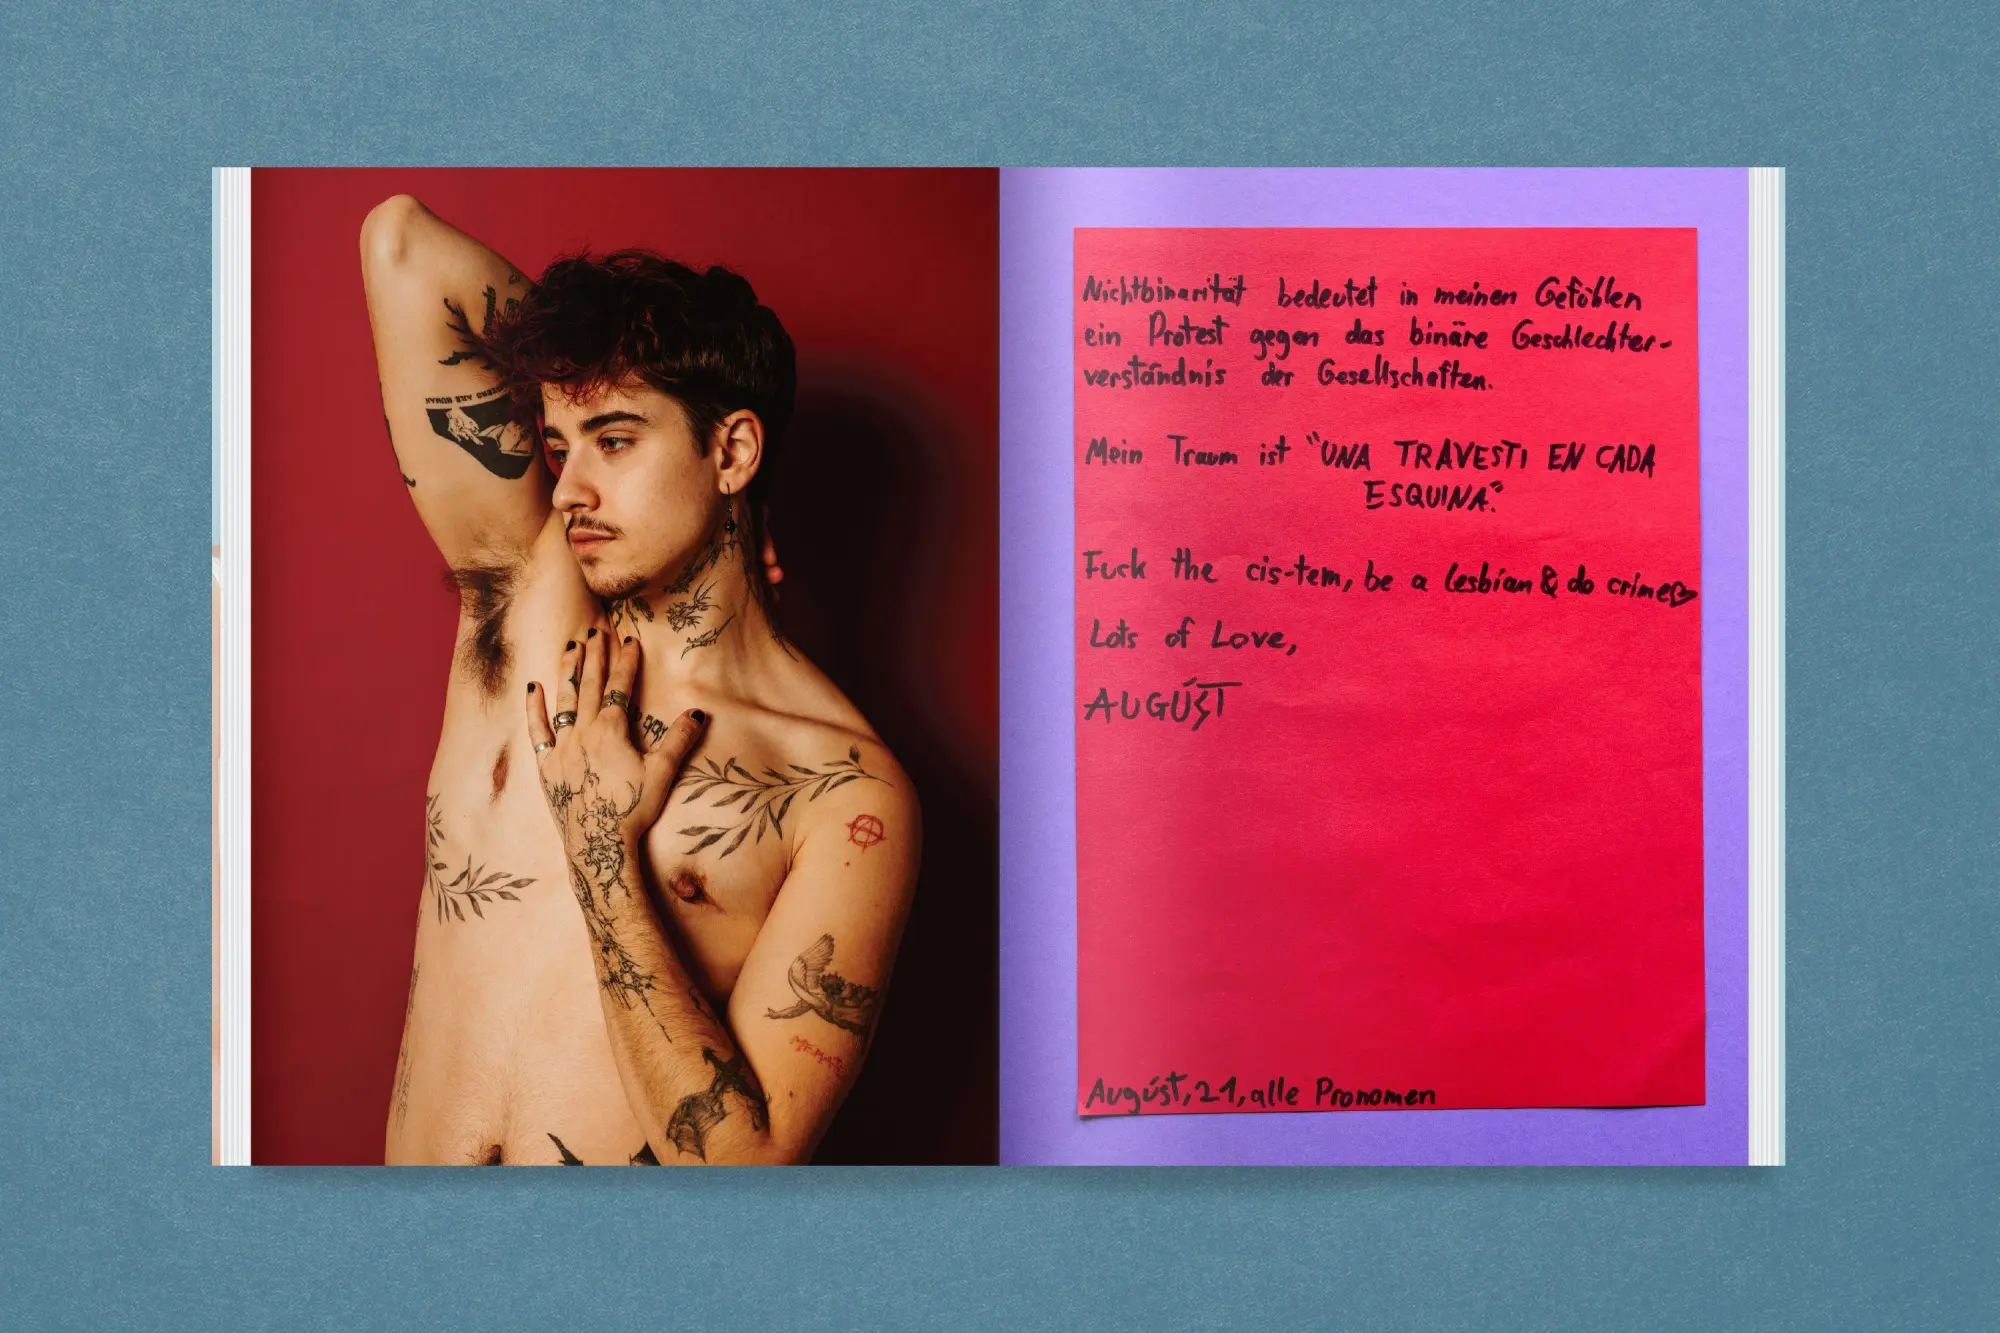 Nichtbinarität bedeutet in meinen Gefühlen
ein Protest gegen das binäre Geschlechter-
verständnis der Gesellschaften.
Mein Traum ist "UNA TRAVESTI EN CADA
ESQUINA."
Fuck the cis-tem, be a lesbian & do crime♡
Lots of Love,
AUGÚST
Augúst, 21, alle Pronomen